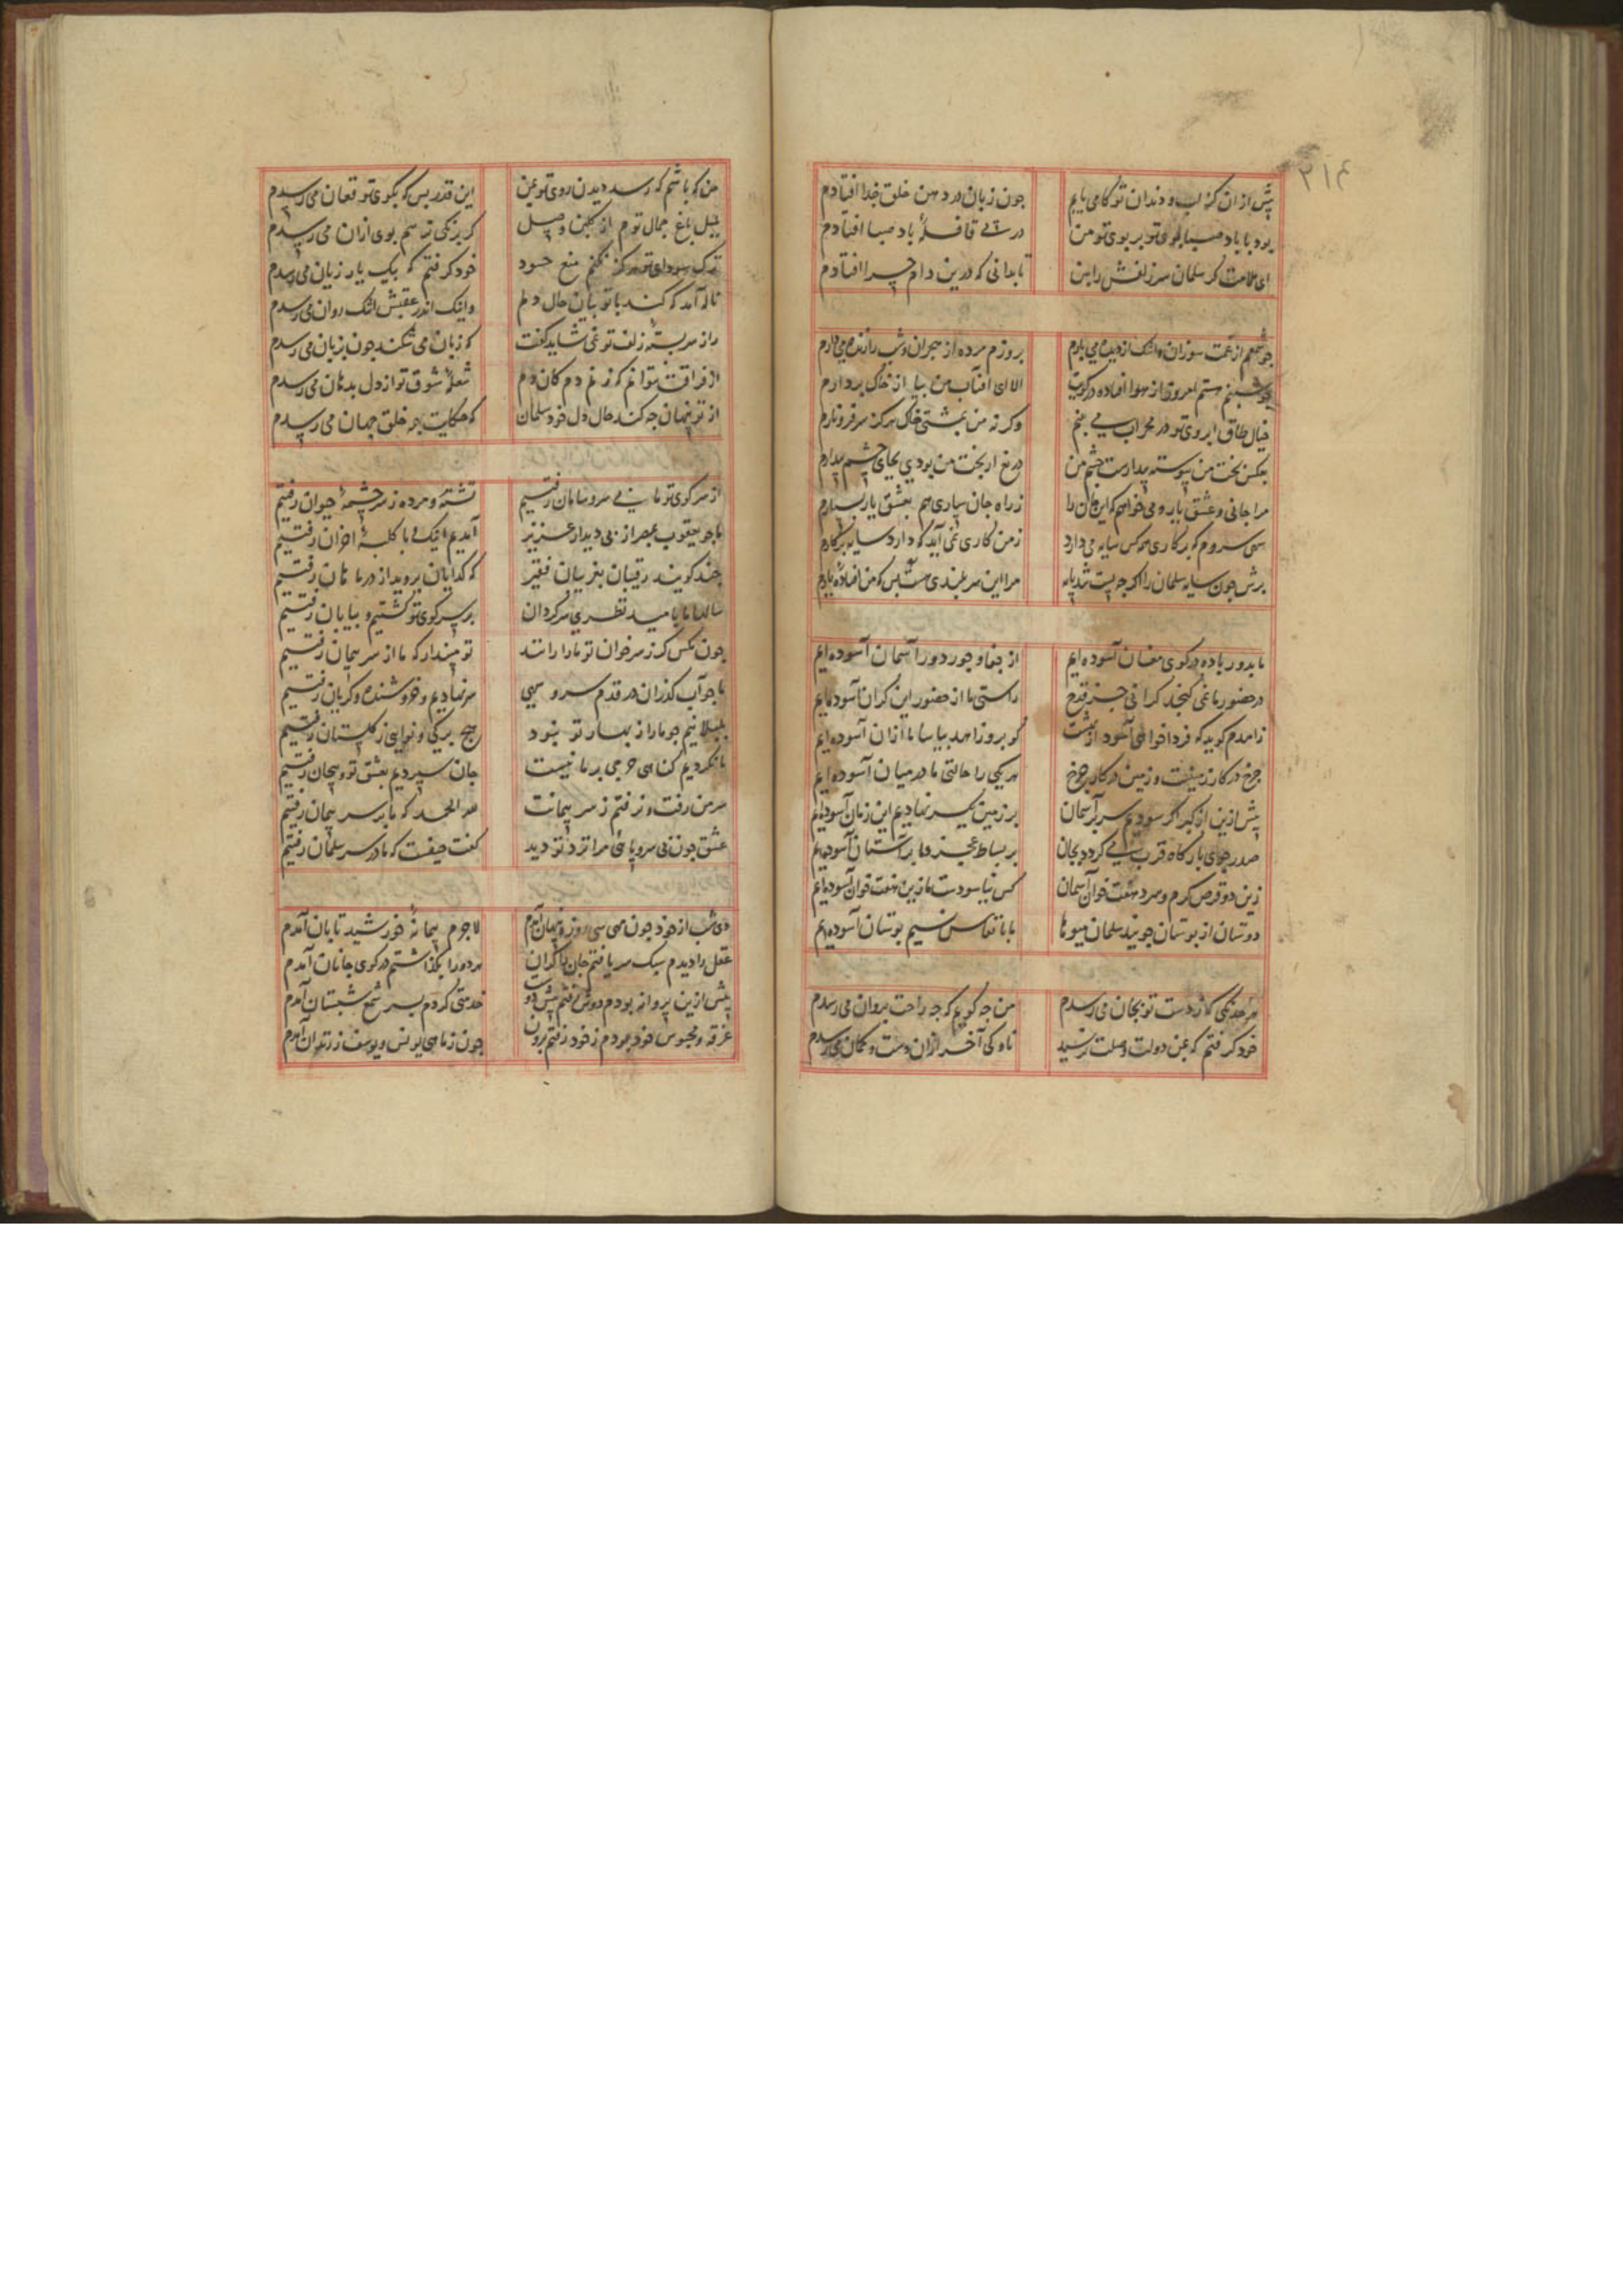 ۲۱۴
پیش ازان کز لب و دندان تو کامی یابم جون زبان در دهن خلق خدا افتادم
بود با باد صبا بوی تو بر بوی تو من در پی قافلهٔ باد صبا افتادم
ای ملامت کر سلمان سر زلفش را بین تا بدانی که درین دام چرا افتادم
جو شمعم از غمت سوزان و اشک از دیده می بارم بروزم مرده از هجران و شب را زنده می دارم
جو شبنم هستم از هوا افتاده در کویت الا ای افتاب من بیا از خاک بردارم
خیال طاق ابروی تو در محراب می بینم وکرنه من بمشتی خاک هرکز سر فرو نارم
بعکس بخت من پیوسته بیدارست چشم من دریغ ار بخت من بودی بجای چشم بیدارم
مرا جانی و عشق یار و می خواهم که این جان را ز راه جان سپاری هم بعشق یار بسپارم
سهی سروم که بر کاری هرکس سایه می دارد ز من کاری نمی آید که دارد سایه بر کارم
برش جون سایه سلمان را اکر جه پست شد پایه مرا این سربلندی هست بس کز من افتاده یارم
ما بدور باده در کوی مغان آسوده ایم از جفا و جور دور آسمان آسوده ایم
در حضور ما نمی کنجد کرانی جز قدح راستی ما از حضور این کران آسوده ایم
زاهدم کوید که فردا خواهی آسود از بهشت کو برو زاهد بیاسا ما ازان آسوده ایم
جرخ در کار زمینست و زمین در کار جرخ هر یکی را حالتی ما در میان آسوده ایم
پیش ازین از کبر اکر سودیم سر بر آسمان بر زمین سر نهادیم این زمان آسوده ایم
صدر جوی بارکاه قرب سعی کردد بجان بر بساط عجز و ما بر آستان آسوده ایم
زین دو قرص کرم و سرد هفت خوان آسمان کس نیاسودست ما زین هفت خوان آسوده ایم
دوستان از بوستان جویند سلمان میوها ما بانفاس نسیم بوستان آسوده ایم
هر خدنکی کز دست تو بجان می رسدم من جه کویم که جه راحت بروان می رسدم
خود کرفتم که بمن دولت وصلت نرسید ناوکی آخر ازان دست و کمان می رسدم
من که باشم که رسد دیدن روی تو بمن این قدر بس که بکوی تو فغان می رسدم
بلبل باغ جمال توم از کلبن وصل کر نه رنکی نه هم بوی ازان می رسدم
ترک سودای تو هرکز نکنم منع حسود خود کرفتم که یک بار زیان می رسدم
ناله آمد که کند با تو بیان حال دلم و اینک اندر عقبش اشک روان می رسدم
راز سربسته زلف تو نمی شاید کفت که زبان می شکند جون بزبان می رسدم
از فراقت نتوانم که زنم دم کان دم شعلهٔ شوق تو از دل بدهان می رسدم
از تو پنهان جه کند حال دل خود سلمان که حکایت همه خلق جهان می رسدم
از سر کوی تو ما بی سر و سامان رفتیم تشنه و مرده ز سر چشمهٔ حیوان رفتیم
ما جو یعقوب بمصر از پی دیدار عزیز آمدیم اینک و با کلبهٔ احزان رفتیم
جند کویند رقیبان بغریبان فقیر که کدایان بروید از در ما هان رفتیم
سالها ما بامید نظری سرکردان بر سر کوی تو کشتیم و بیابان رفتیم
جون مکس کر ز سر خوان تو ما را رانند تو مپندار که ما از سر پیمان رفتیم
ما جو آب کذران در قدم سرو سهی سر نهادیم و خروشنده و کریان رفتیم
بلبلانیم جو ما را ز بهار تو نبود هیچ برکی و نوایی ز کلستان رفتیم
ما نکردیم کناهی حرجی بر ما نیست جان سپردیم بعشق تو و بیجان رفتیم
سر من رفت و نرفتم ز سر پیمانت لله الحمد که ما بر سر پیمان رفتیم
عشق جون بی سر و پایی مرا نزد تو دید کفت حیفست که ما در سر سلمان رفتیم
دی شب از خود جون مهی سی روزه پنهان آمدم لاجرم پیمانه خورشید تابان آمدم
عقل را دیدم سبک سر یافتم جان را کران هر دو را بکذاشتم در کوی جانان آمدم
پیش ازین پروانه بودم دوش رفتم پیش دوست خدمتی کردم بسر شمع شبستان آمدم
غرقه و محبوس خود بودم ز خود رفتم برون جون ز ماهی یونس و یوسف ز زندان آمدم